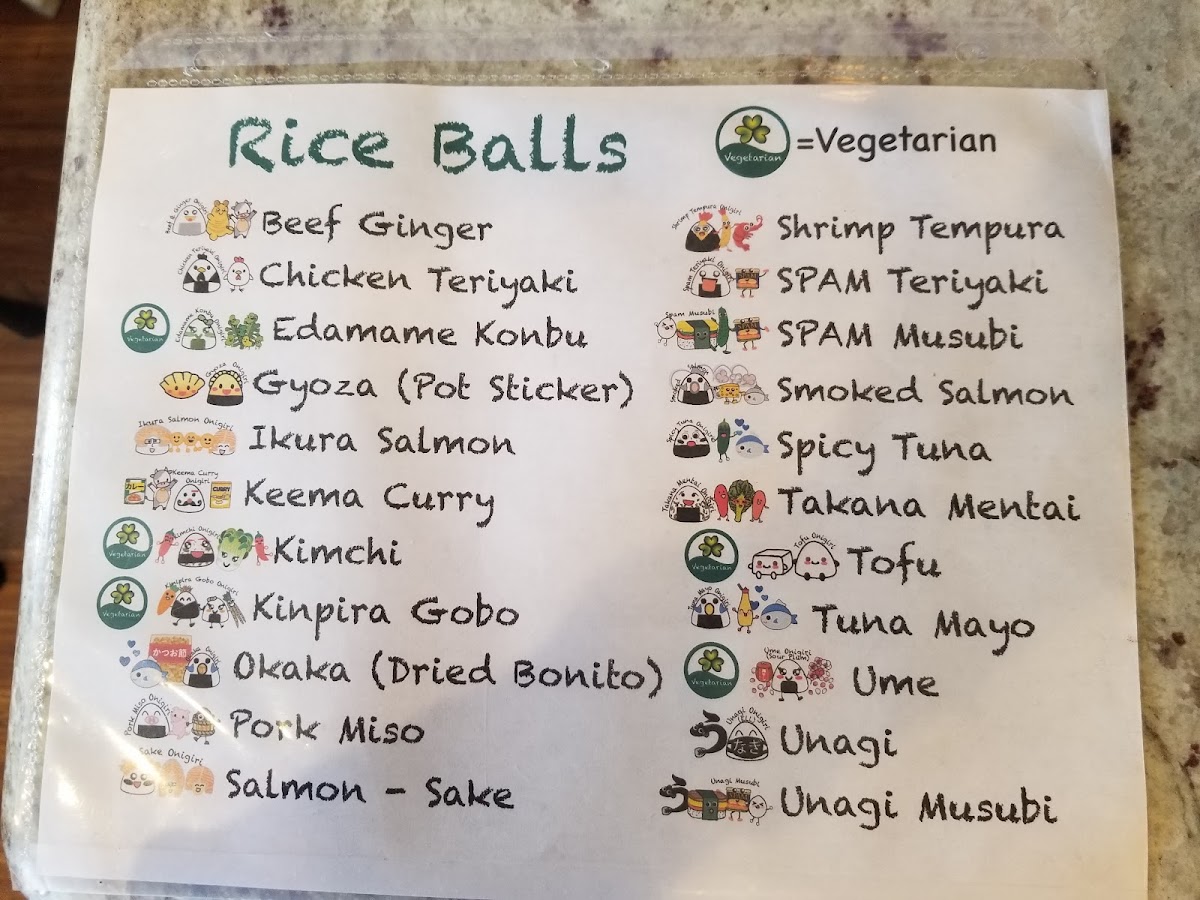 Rice Balls
Vegetarian
=Vegetarian
Beef & Ginger Onigiri
Beef Ginger
Chicken Teriyaki Onigiri
Chicken Teriyaki
Vegetarian
Edamame Konbu Onigiri
Edamame Konbu
Gyoza Onigiri
Gyoza (Pot Sticker)
Ikura Salmon Onigiri
Ikura Salmon
Keema Curry Onigiri
カレー
CURRY
Keema Curry
Vegetarian
Kimchi Onigiri
Kimchi
Vegetarian
Kinpira Gobo Onigiri
Kinpira Gobo
かつお節
Okaka (Dried Bonito)
Pork Miso Onigiri
Pork Miso
Sake Onigiri
Salmon - Sake
Shrimp Tempura Onigiri
Shrimp Tempura
Spam Teriyaki Onigiri
SPAM Teriyaki
Spam Musubi
SPAM Musubi
Smoked Salmon
Spicy Tuna Onigiri
Spicy Tuna
Takana Mentai Onigiri
Takana Mentai
Vegetarian
Tofu Onigiri
Tofu
Tuna Mayo Onigiri
Tuna Mayo
Vegetarian
Ume Onigiri
(Sour Plum)
Ume
Unagi Onigiri
う
なぎ
Unagi
Unagi Musubi
う
Unagi Musubi